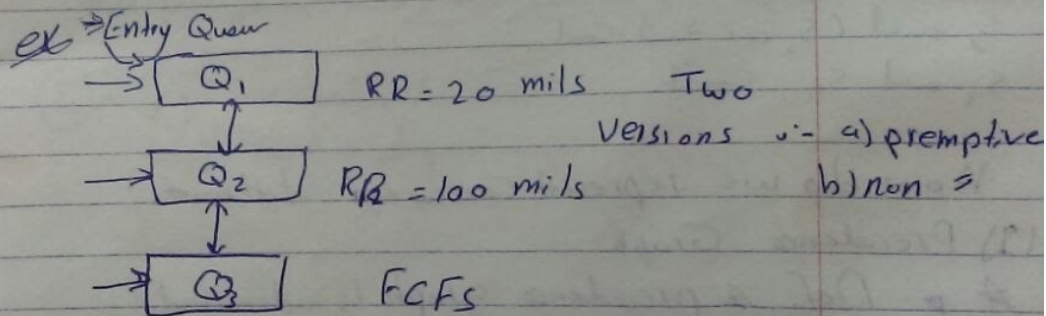 ex ⇒ Entry Queu
Q1 RR = 20 mils Two
versions :- a) premptive
Q2 RR = 100 mils b) non =
Q3 FCFS